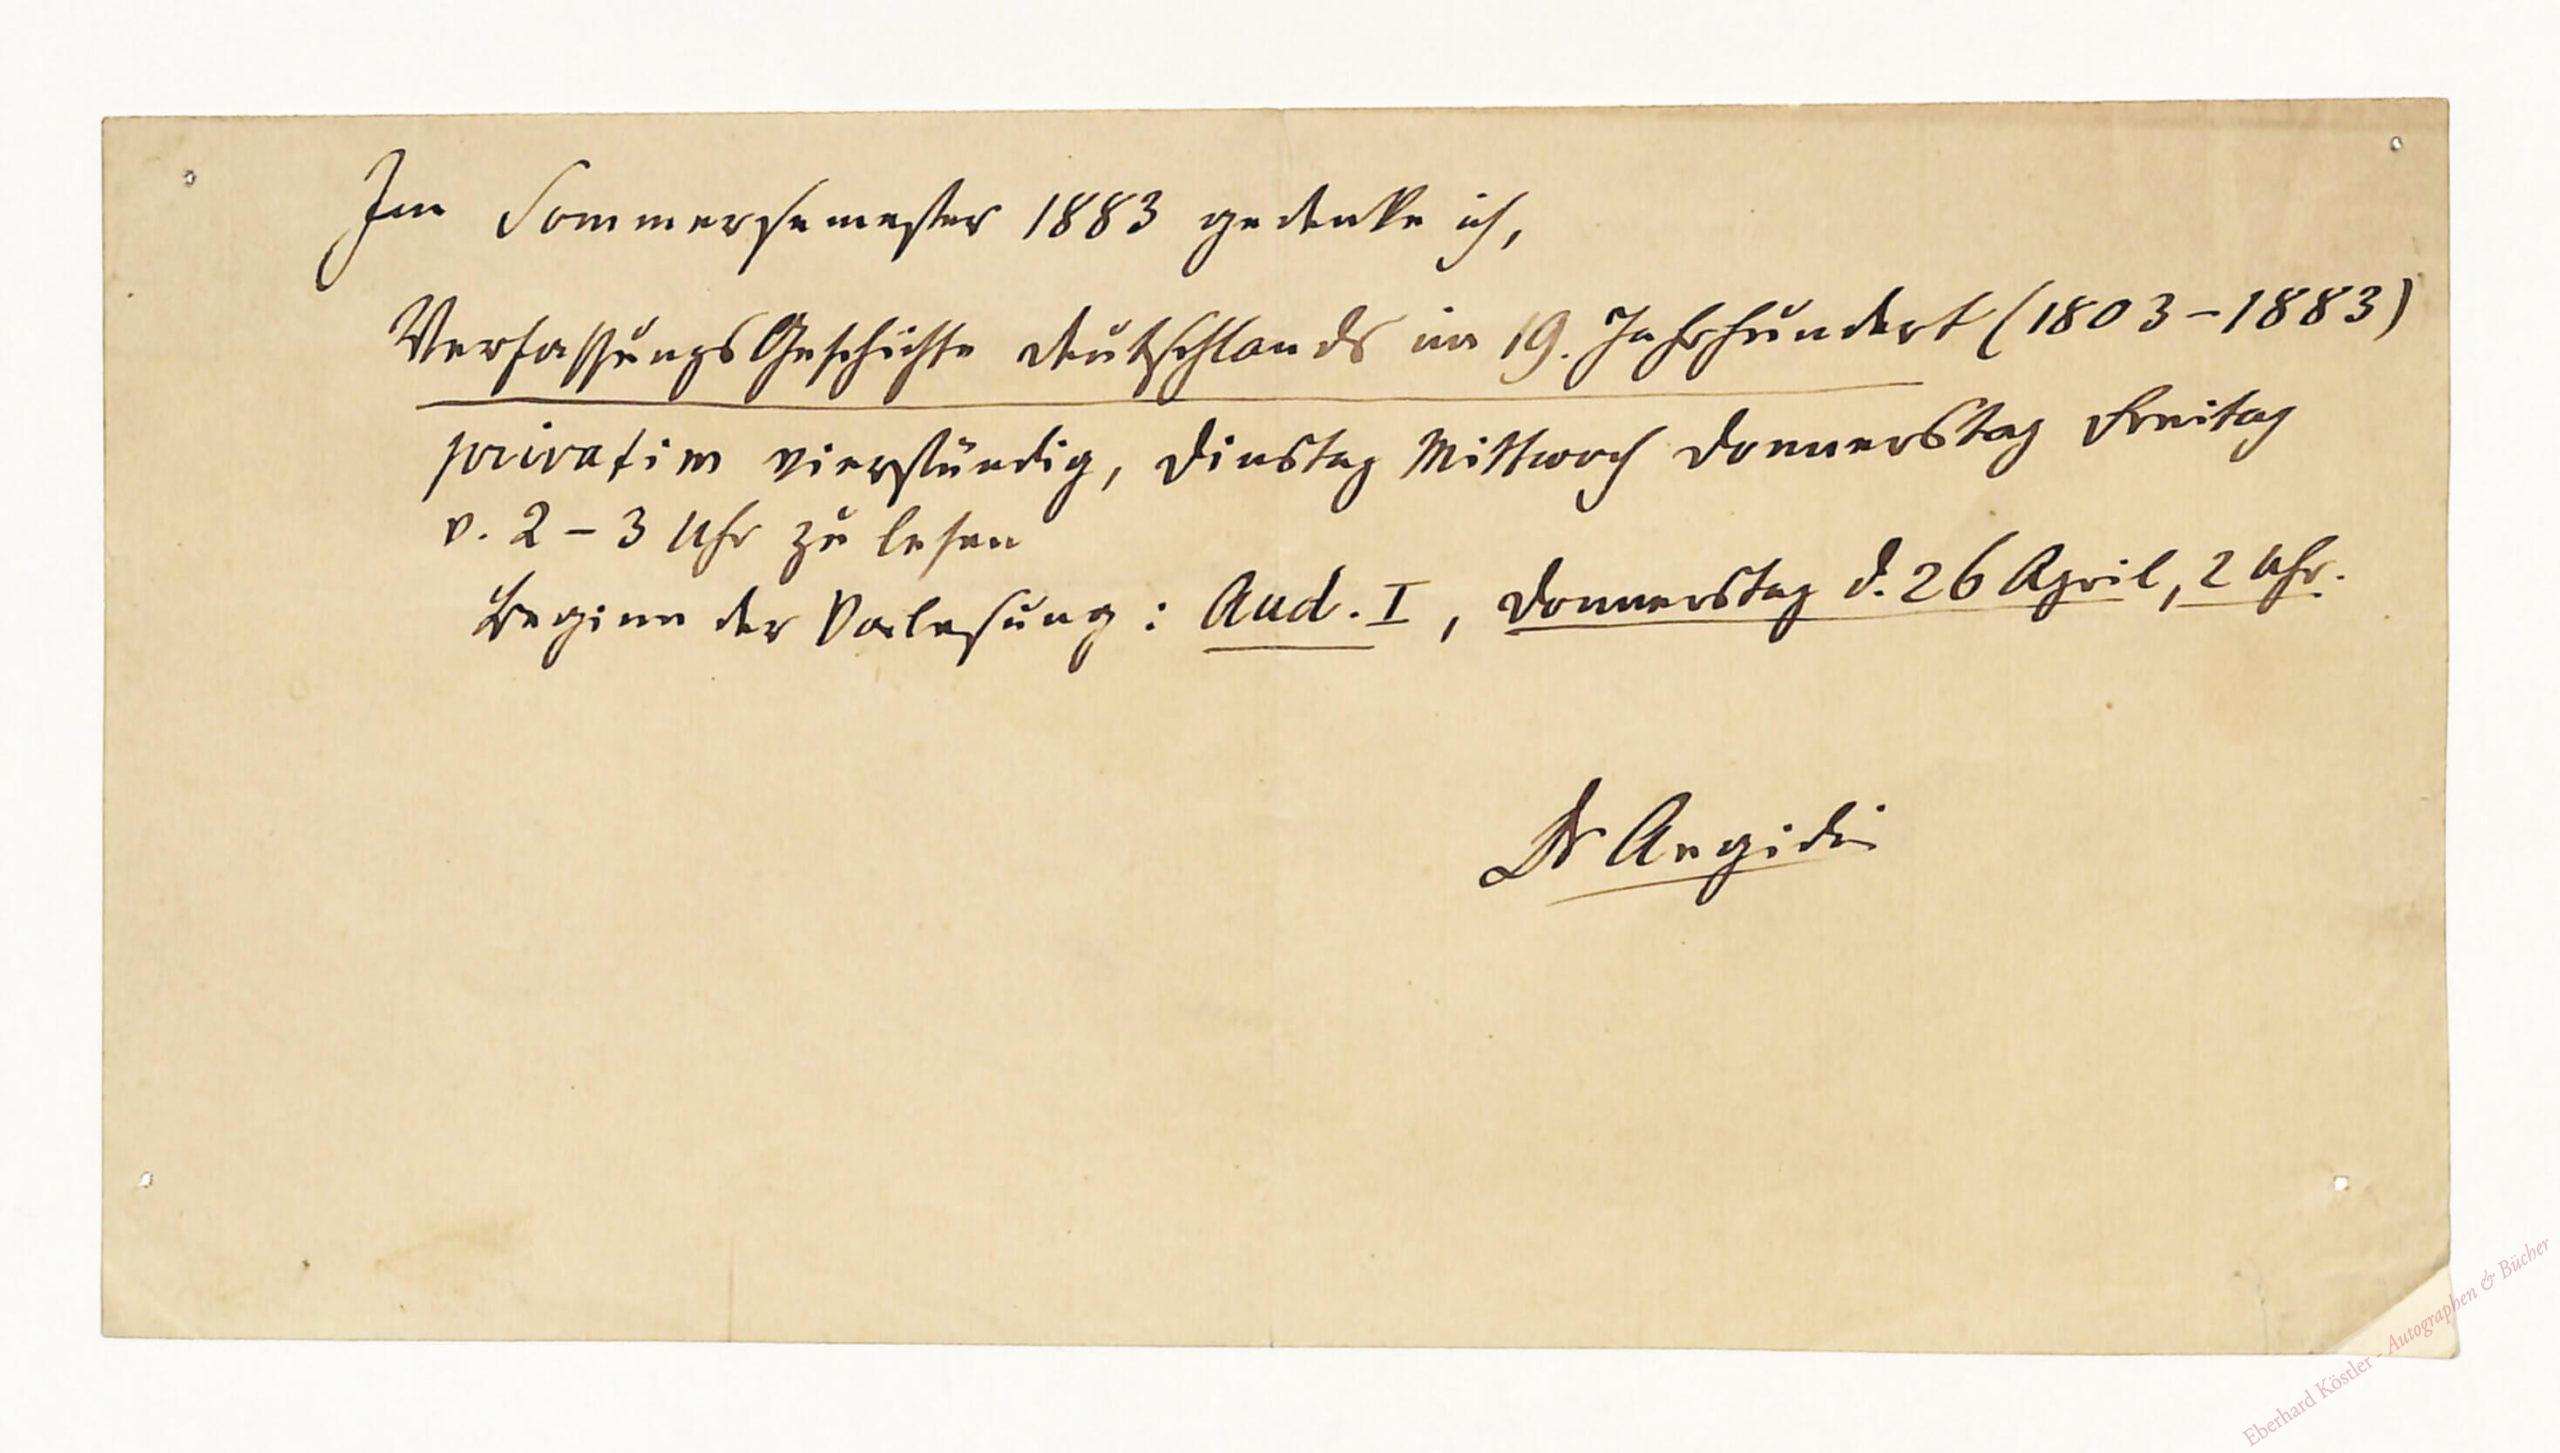 Im Sommersemester 1883 gedenke ich,
VerfassungsGeschichte Deutschlands im 19. Jahrhundert (1803–1883)
privatim vierstündig, Dinstag Mittwoch Donnerstag Freitag
v. 2–3 Uhr zu lesen
Beginn der Vorlesung: Aud. I, Donnerstag d. 26 April, 2 Uhr.
Dr Aegidi
Eberhard Köstler - Autographen & Bücher